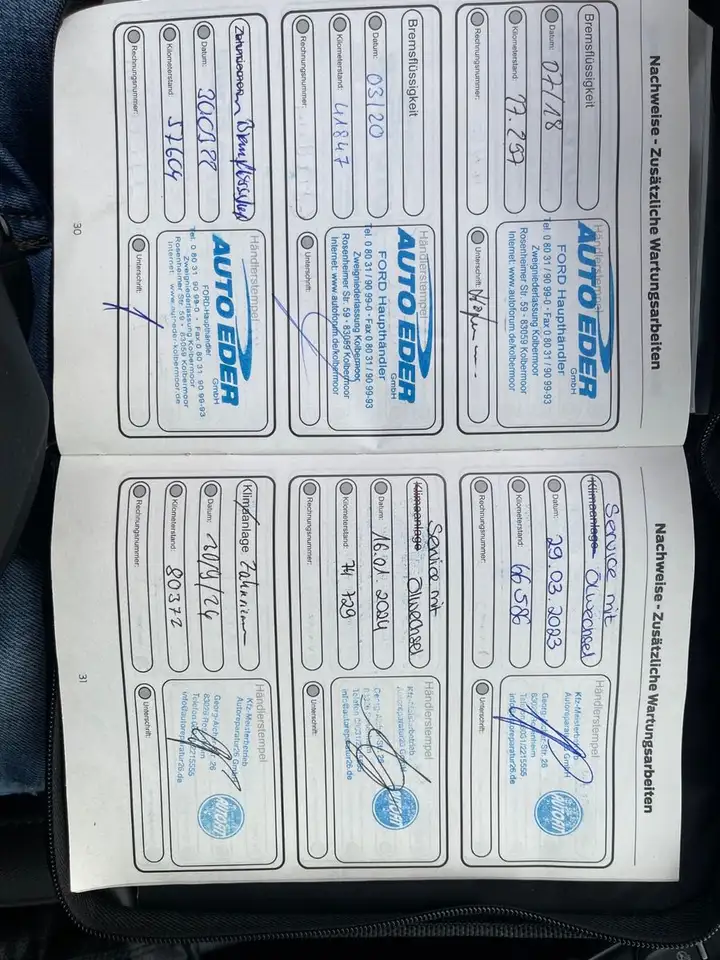 Nachweise - Zusätzliche Wartungsarbeiten
Bremsflüssigkeit
Datum: 07/18
Kilometerstand: 17.297
Rechnungsnummer:
Händlerstempel
AUTO EDER
GmbH
FORD Haupthändler
Tel. 0 80 31 / 90 99-0 · Fax 0 80 31 / 90 99-93
Zweigniederlassung Kolbermoor
Rosenheimer Str. 59 · 83059 Kolbermoor
Internet: www.autoforum.de/kolbermoor
Unterschrift:
Bremsflüssigkeit
Datum: 03/20
Kilometerstand: 41847
Rechnungsnummer:
Händlerstempel
AUTO EDER
GmbH
FORD Haupthändler
Tel. 0 80 31 / 90 99-0 · Fax 0 80 31 / 90 99-93
Zweigniederlassung Kolbermoor
Rosenheimer Str. 59 - 83059 Kolbermoor
Internet: www.autoforum.de/kolbermoor
Unterschrift:
Datum:
Kilometerstand: 57604
Rechnungsnummer:
Händlerstempel
AUTO EDER
GmbH
FORD-Haupthändler
Tel. 0 80 31 90 99-0 · Fax 0 80 31 90 99-93
Zweigniederlassung Kolbermoor
Rosenheimer Str. 59 · 83059 Kolbermoor
Internet: www.auto-eder-kolbermoor.de
Unterschrift:
30
Nachweise - Zusätzliche Wartungsarbeiten
Service mit
Klimaanlage Ölwechsel
Datum: 29.03.2023
Kilometerstand: 66.586
Rechnungsnummer:
Händlerstempel
Kfz-Meisterbetrieb
Autoreparatur GmbH
Str. 26
info@autoreparatur26.de
Unterschrift:
Service mit
Klimaanlage Ölwechsel
Datum: 16.01.2024
Kilometerstand: 74 729
Rechnungsnummer:
Händlerstempel
Kfz-Meisterbetrieb
info@autoreparatur26.de
Unterschrift:
Klimaanlage
Datum: 20/9/24
Kilometerstand: 80372
Rechnungsnummer:
Händlerstempel
Kfz-Meisterbetrieb
Autoreparatur26 GmbH
info@autoreparatur26.de
Unterschrift:
31